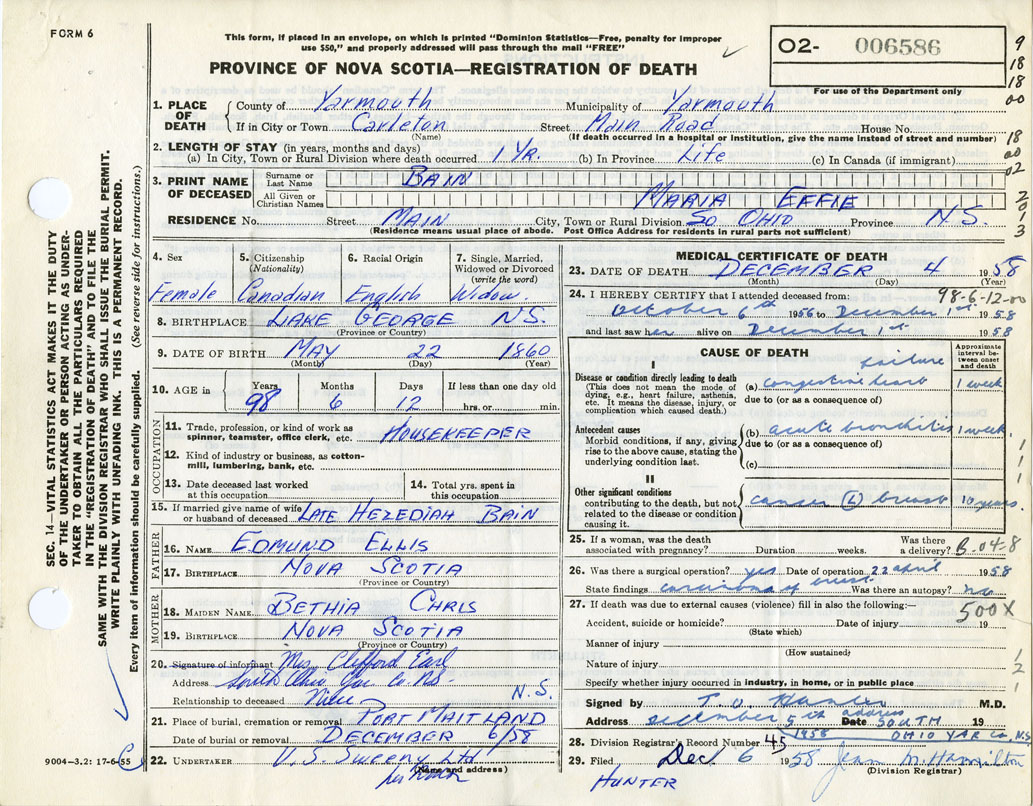 FORM 6
This form, if placed in an envelope, on which is printed "Dominion Statistics—Free, penalty for improper
use $50," and properly addressed will pass through the mail "FREE"
O2- 006586
For use of the Department only
PROVINCE OF NOVA SCOTIA—REGISTRATION OF DEATH
9
18
18
00
18
00
02
2
0
1
3
1. PLACE OF DEATH { County of Yarmouth Municipality of Yarmouth
If in City or Town Carleton Street Main Road House No.
(Name) (If death occurred in a hospital or institution, give the name instead of street and number)
2. LENGTH OF STAY (in years, months and days)
(a) In City, Town or Rural Division where death occurred 1 YR. (b) In Province Life (c) In Canada (if immigrant)
3. PRINT NAME OF DECEASED { Surname or Last Name BAIN
All Given or Christian Names MARIA EFFIE
RESIDENCE No. Street MAIN City, Town or Rural Division SO OHIO Province N.S.
(Residence means usual place of abode. Post Office Address for residents in rural parts not sufficient)
SEC. 14—VITAL STATISTICS ACT MAKES IT THE DUTY
OF THE UNDERTAKER OR PERSON ACTING AS UNDER-
TAKER TO OBTAIN ALL THE PARTICULARS REQUIRED
IN THE "REGISTRATION OF DEATH" AND TO FILE THE
SAME WITH THE DIVISION REGISTRAR WHO SHALL ISSUE THE BURIAL PERMIT.
WRITE PLAINLY WITH UNFADING INK. THIS IS A PERMANENT RECORD.
Every item of information should be carefully supplied. (See reverse side for instructions.)
4. Sex 5. Citizenship (Nationality) 6. Racial Origin 7. Single, Married, Widowed or Divorced (write the word)
Female Canadian English Widow
8. BIRTHPLACE LAKE GEORGE N.S.
(Province or Country)
9. DATE OF BIRTH MAY 22 1860
(Month) (Day) (Year)
10. AGE in Years Months Days If less than one day old
98 6 12 hrs. or min.
OCCUPATION
11. Trade, profession, or kind of work as spinner, teamster, office clerk, etc. HOUSEKEEPER
12. Kind of industry or business, as cotton-mill, lumbering, bank, etc.
13. Date deceased last worked at this occupation
14. Total yrs. spent in this occupation
15. If married give name of wife or husband of deceased LATE HEZEDIAH BAIN
FATHER
16. NAME EDMUND ELLIS
17. BIRTHPLACE NOVA SCOTIA
(Province or Country)
MOTHER
18. MAIDEN NAME BETHIA CHRIS
19. BIRTHPLACE NOVA SCOTIA
(Province or Country)
20. Signature of informant Mrs. Clifford Earl
Address South Ohio Yar Co. N.S.
Relationship to deceased Niece N.S.
21. Place of burial, cremation or removal PORT MAITLAND
Date of burial or removal DECEMBER 6/58
22. UNDERTAKER V. S. Sweeny Ltd
(Name and address)
9004—3.2: 17-6-55
MEDICAL CERTIFICATE OF DEATH
23. DATE OF DEATH DECEMBER 4 1958
(Month) (Day) (Year)
98-6-12-00
24. I HEREBY CERTIFY that I attended deceased from:
October 6th 1956 to December 1st 1958
and last saw her alive on December 1st 1958
CAUSE OF DEATH
Approximate interval between onset and death
I
Disease or condition directly leading to death
(This does not mean the mode of dying, e.g., heart failure, asthenia, etc. It means the disease, injury, or complication which caused death.)
(a) congestive heart failure 1 week
due to (or as a consequence of)
Antecedent causes
Morbid conditions, if any, giving rise to the above cause, stating the underlying condition last.
(b) acute bronchitis 1 week
due to (or as a consequence of)
(c)
II
Other significant conditions
contributing to the death, but not related to the disease or condition causing it.
cancer (L) breast 10 years
1
1
1
25. If a woman, was the death associated with pregnancy? Duration weeks. Was there a delivery? B-04-8
26. Was there a surgical operation? yes Date of operation 22 April 1958
State findings carcinoma of breast Was there an autopsy? no
27. If death was due to external causes (violence) fill in also the following:— 500X
Accident, suicide or homicide? Date of injury 19
(State which)
Manner of injury
(How sustained)
Nature of injury
1
2
1
Specify whether injury occurred in industry, in home, or in public place
Signed by T. O. M.D.
Address December 5th address Date SOUTH 19
1958 OHIO YAR Co, N.S
28. Division Registrar's Record Number 45
29. Filed Dec 6 1958 Jean M. Hamilton
(Division Registrar)
HUNTER